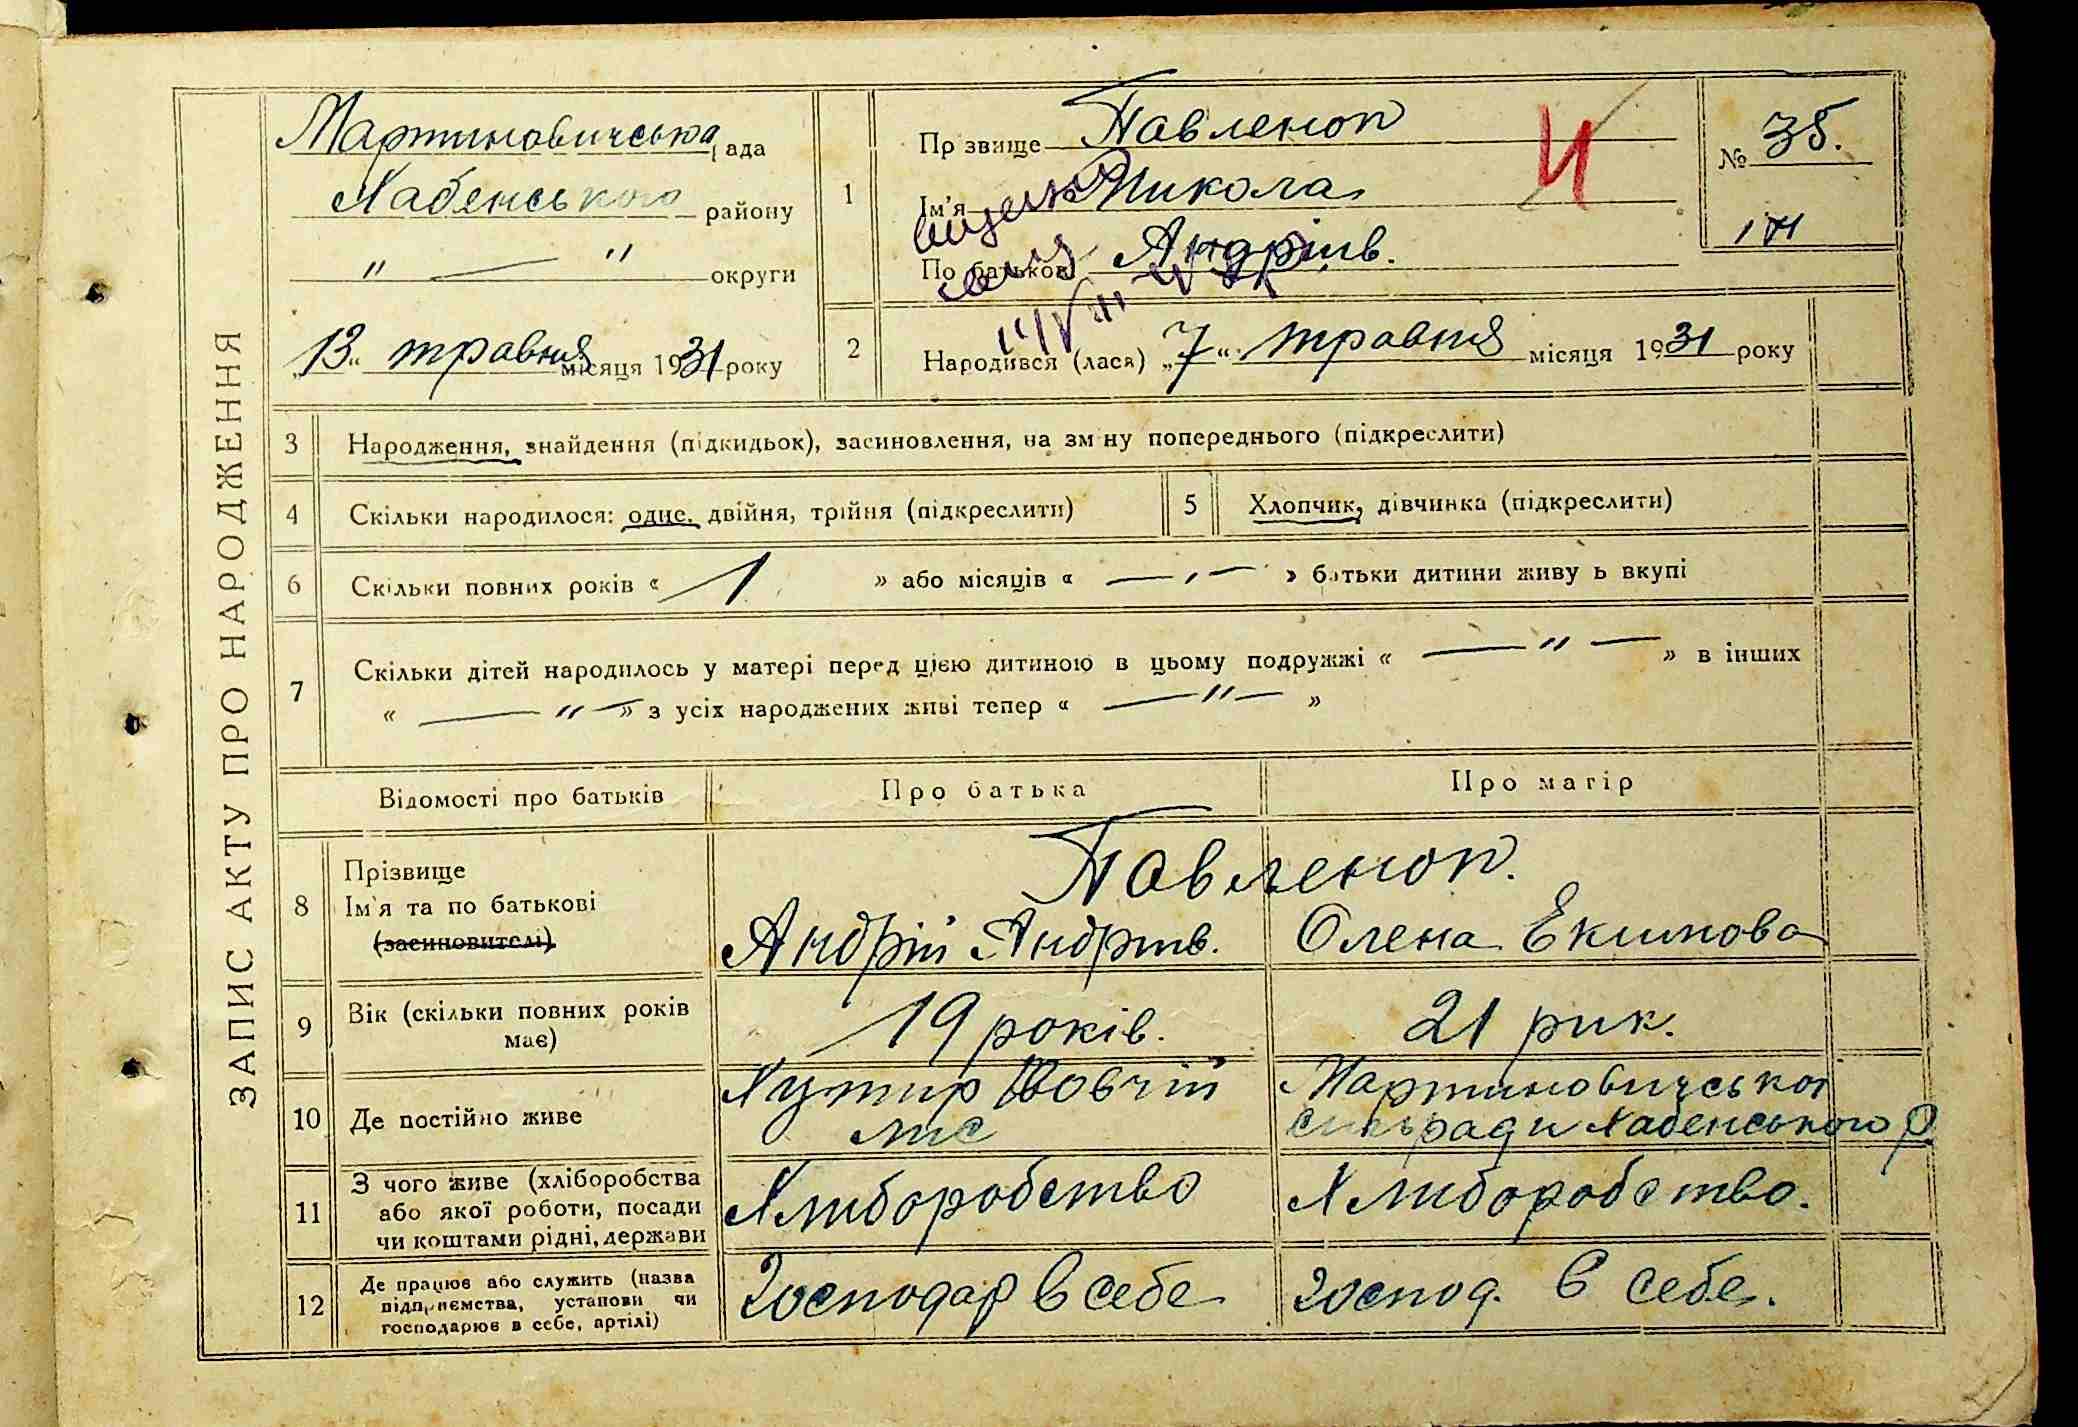 ЗАПИС АКТУ ПРО НАРОДЖЕННЯ
Мартиновичська рада
Хабенського району
" — " округи
„13“ травня місяця 1931 року
1
Прізвище Павленоп
Ім'я Микола
По батькові Андріів.
№ 35.
2
Народився (лася) „7“ травня місяця 1931 року
3 Народження, знайдення (підкидьок), засиновлення, на зміну попереднього (підкреслити)
4 Скільки народилося: одне, двійня, трійня (підкреслити)
5 Хлопчик, дівчинка (підкреслити)
6 Скільки повних років « 1 » або місяців « — „ — » батьки дитини живуть вкупі
7 Скільки дітей народилось у матері перед цією дитиною в цьому подружжі « — " — » в інших
« — " — » з усіх народжених живі тепер « — " — »
Відомості про батьків Про батька Про матір
8 Прізвище
Ім'я та по батькові
(засиновителі)
Павленоп.
Андрій Андріів. Олена Екимова
9 Вік (скільки повних років має)
19 років. 21 рик.
10 Де постійно живе
Хутир Вовчій Мартиновичської
лис сильради Хабенського р.
11 З чого живе (хліборобства
або якої роботи, посади
чи коштами рідні, держави
Хлиборобство Хлиборобство.
12 Де працює або служить (назва
підприємства, установи чи
господарює в себе, артілі)
Господар в себе господ. в себе.